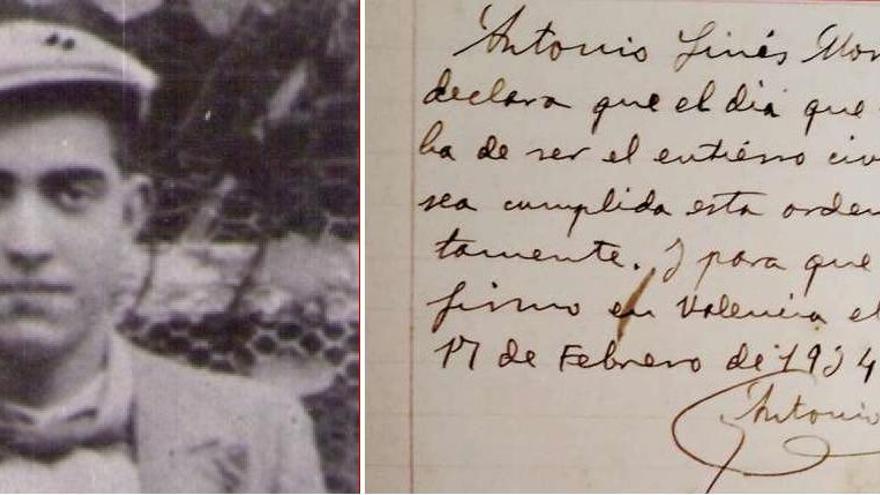 Antonio Ginés Mon
declara que el dia que
ha de ser el entierro civ
sea cumplida esta orden
tamente. Y para que
firmo en Valencia el
17 de Febrero de 1934
Antonio